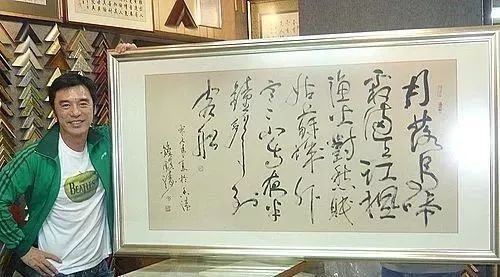 月落烏啼
霜滿天江楓
漁火對愁眠
姑蘇城外
寒山寺夜半
鐘聲到
客船
BEATLES